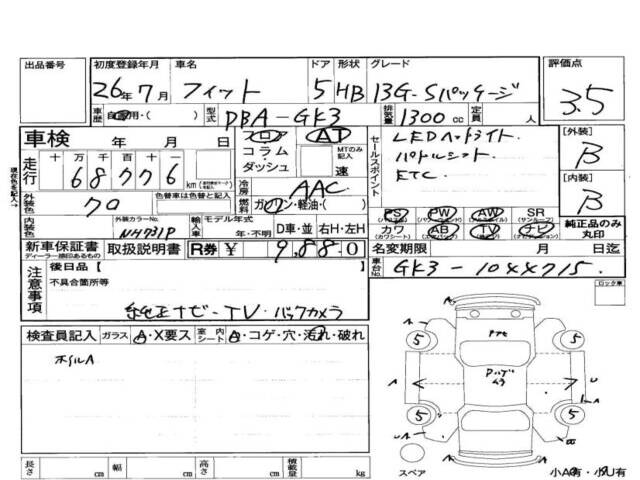 出品番号 初度登録年月 車名 ドア 形状 グレード 評価点
26年 7月 フィット 5 HB 13G-Sパッケージ 3.5
車歴 自家用・( ) 型式 DBA-GK3 排気量 1300 cc 定員 人
車検 年 月 日 フロア・コラム・ダッシュ AT MTのみ記入 速
走行 十万千百十一 68776 km
冷房 AAC
燃料 ガソリン・軽油・( )
セールスポイント LEDヘッドライト
パドルシフト
ETC
[外装] B
[内装] B
外装色 クロ 色替車は色替前と記入
内装色 外装カラーNo. NH731P 輸入車 モデル年式 年・不明 D車・並 右H・左H
PS PW AW SR
カワ AB TV ナビ 純正品のみ丸印
新車保証書 取扱説明書 R券 ¥ 9,880 名変期限 月 日迄
ディーラー捺印あるもの
車台No. GK3-10XX715
注意事項 後日品【 】
不具合箇所等
純正ナビ-TV・バックカメラ
ロック車
検査員記入 ガラス A・X要ス 室内シート A・コゲ・穴・汚れ・破れ
ホイルA
A 5 5 A U A 5 5
長さ cm 幅 cm 高さ cm 積載量 kg
スペア 小A有・小U有